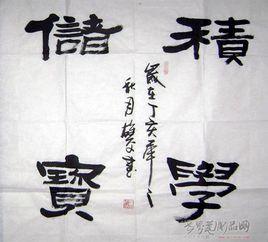 積學
儲寶
歲在丁亥年之
秋月
書